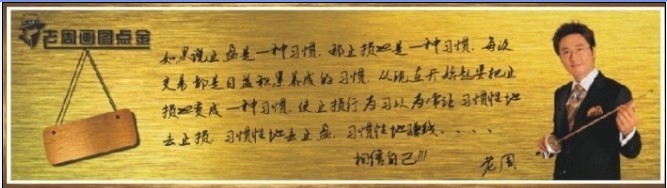 老周画图点金
如果说止盈是一种习惯，那止损也是一种习惯，每次
交易都是日益积累养成的习惯，从现在开始起要把止
损也变成一种习惯，使止损行为习以为常让习惯性地
去止损，习惯性地去止盈，习惯性地赚钱....
相信自己!!!
老周